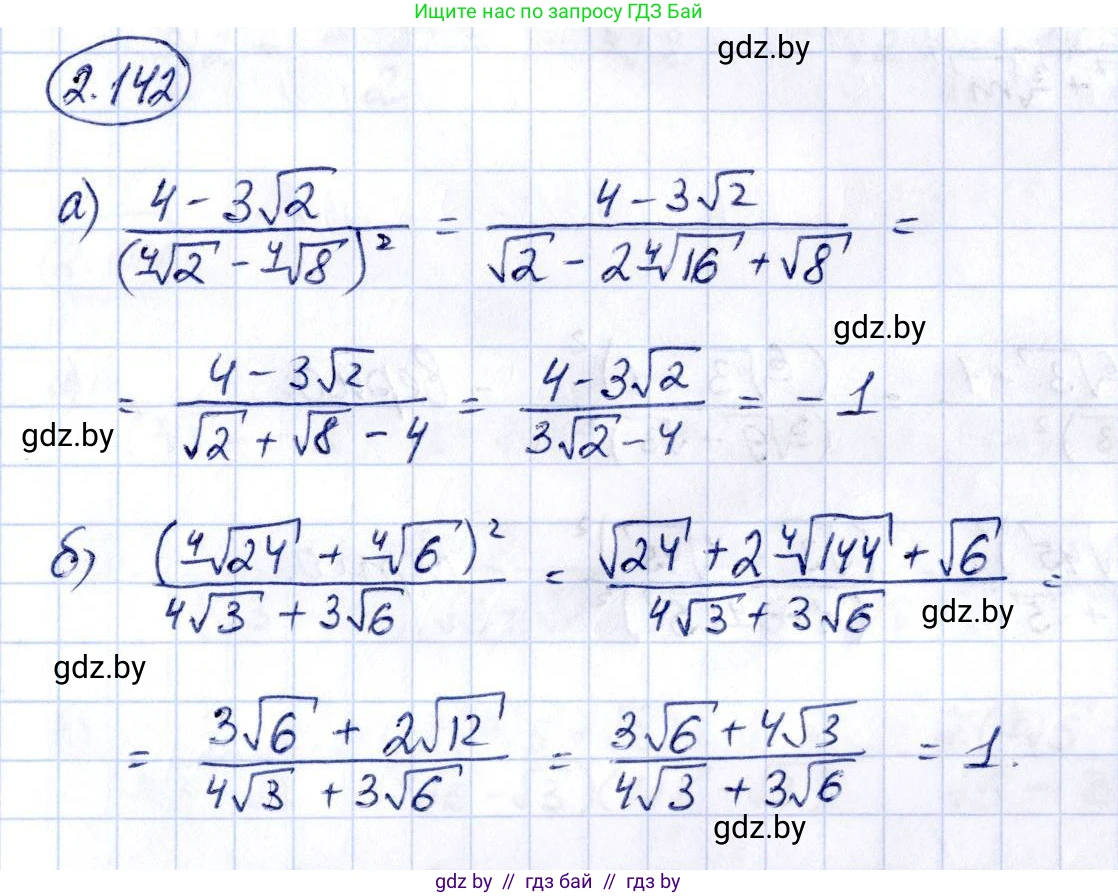 Ищите нас по запросу ГДЗ Бай
gdz.by
2.142
а) (4 - 3√2) / (∜2 - ∜8)² = (4 - 3√2) / (√2 - 2∜16 + √8) =
gdz.by
= (4 - 3√2) / (√2 + √8 - 4) = (4 - 3√2) / (3√2 - 4) = - 1
gdz.by
б) (∜24 + ∜6)² / (4√3 + 3√6) = (√24 + 2∜144 + √6) / (4√3 + 3√6) =
gdz.by
gdz.by
= (3√6 + 2√12) / (4√3 + 3√6) = (3√6 + 4√3) / (4√3 + 3√6) = 1.
gdz.by
gdz.by // гдз бай // гдз by